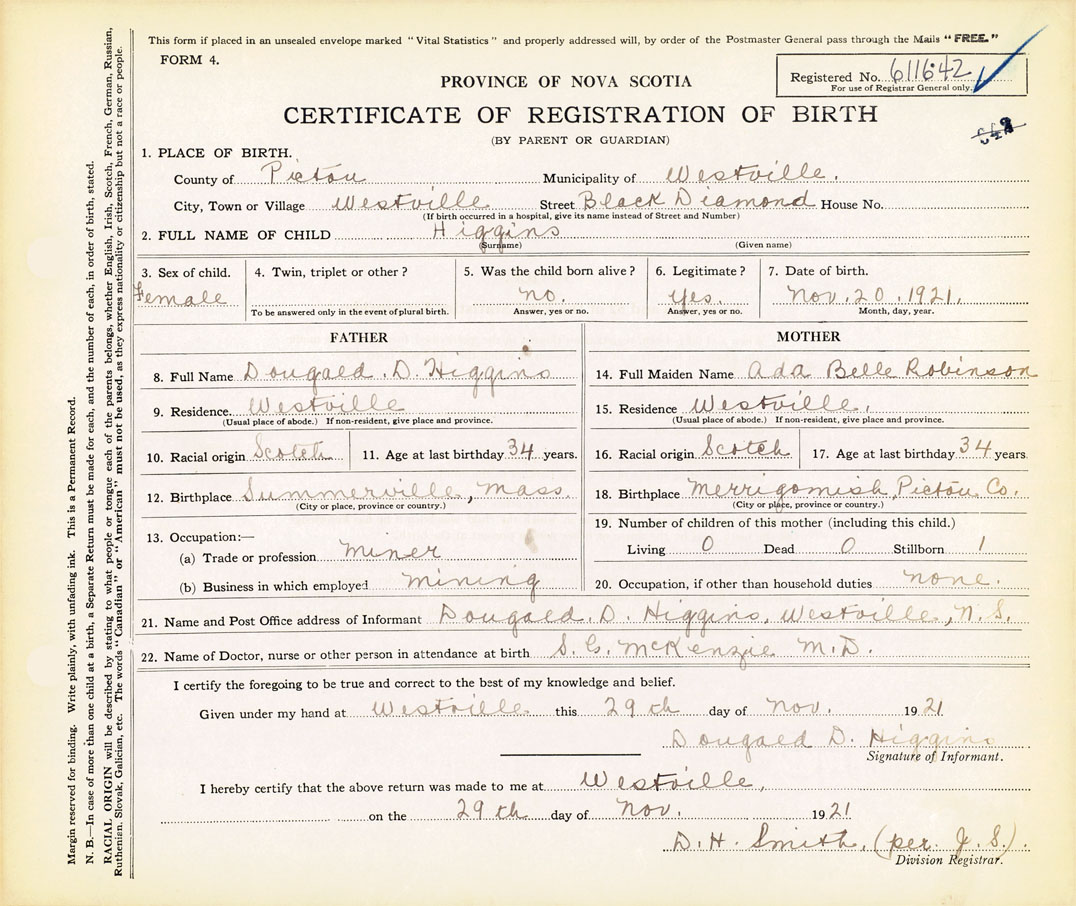 This form if placed in an unsealed envelope marked "Vital Statistics" and properly addressed will, by order of the Postmaster General pass through the Mails "FREE."
FORM 4.
Registered No. 611642
For use of Registrar General only.
PROVINCE OF NOVA SCOTIA
CERTIFICATE OF REGISTRATION OF BIRTH
(BY PARENT OR GUARDIAN)
1. PLACE OF BIRTH.
County of Pictou Municipality of Westville.
City, Town or Village Westville Street Black Diamond House No.
(If birth occurred in a hospital, give its name instead of Street and Number)
2. FULL NAME OF CHILD Higgins
(Surname) (Given name)
3. Sex of child. 4. Twin, triplet or other? 5. Was the child born alive? 6. Legitimate? 7. Date of birth.
Female no. yes. Nov. 20. 1921.
To be answered only in the event of plural birth. Answer, yes or no. Answer, yes or no. Month, day, year.
FATHER
8. Full Name Dougald. D. Higgins
9. Residence. Westville
(Usual place of abode.) If non-resident, give place and province.
10. Racial origin Scotch 11. Age at last birthday 34 years.
12. Birthplace Summerville, Mass.
(City or place, province or country.)
13. Occupation:—
(a) Trade or profession Miner
(b) Business in which employed Mining
MOTHER
14. Full Maiden Name Ada Belle Robinson
15. Residence Westville.
(Usual place of abode.) If non-resident, give place and province.
16. Racial origin Scotch 17. Age at last birthday 34 years.
18. Birthplace Merrigomish, Pictou Co.
(City or place, province or country.)
19. Number of children of this mother (including this child.)
Living 0 Dead 0 Stillborn 1
20. Occupation, if other than household duties none.
21. Name and Post Office address of Informant Dougald D. Higgins, Westville, N. S.
22. Name of Doctor, nurse or other person in attendance at birth S. G. McKenzie M.D.
I certify the foregoing to be true and correct to the best of my knowledge and belief.
Given under my hand at Westville this 29th day of Nov. 1921
Dougald D. Higgins
Signature of Informant.
I hereby certify that the above return was made to me at Westville,
on the 29th day of Nov. 1921
D. H. Smith, (per. J. S.).
Division Registrar.
Margin reserved for binding. Write plainly, with unfading ink. This is a Permanent Record.
N. B.—In case of more than one child at a birth, a Separate Return must be made for each, and the number of each, in order of birth, stated.
RACIAL ORIGIN will be described by stating to what people or tongue each of the parents belongs, whether English, Irish, Scotch, French, German, Russian,
Ruthenian, Slovak, Galician, etc. The words "Canadian" or "American" must not be used, as they express nationality or citizenship but not a race or people.